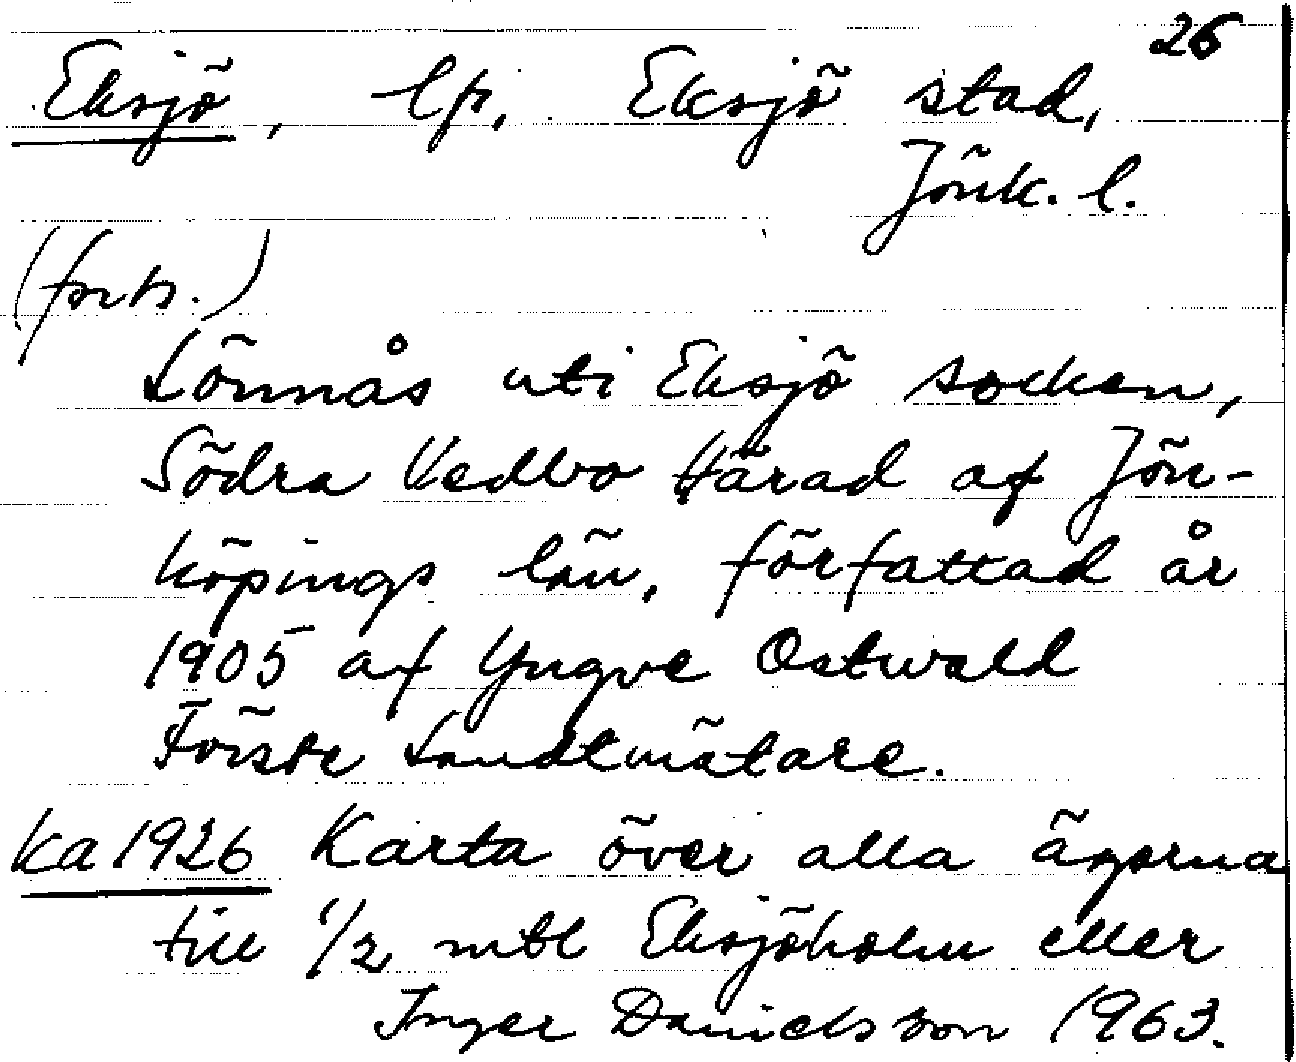 26
Eksjö, lp, Eksjö stad,
Jönk. l.
(forts.)
Lönnås uti Eksjö socken,
Södra Vedbo Härad af Jön-
köpings län, författad år
1905 af Yngve Ostwald
Förste Landtmätare.
ka 1926 Karta över alla ägorna
till 1/2 mtl Eksjöholm eller
Inger Danielsson 1963.